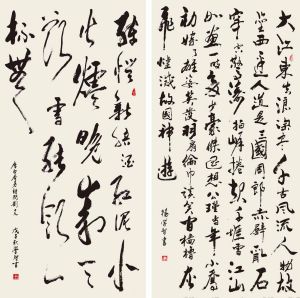 大江東去浪淘盡千古風流人物故
壘西邊人道是三國周郎赤壁亂石
穿空驚濤拍岸捲起千堆雪江山
如畫一時多少豪傑遙想公瑾當年小喬
初嫁了雄姿英發羽扇綸巾談笑間檣櫓
飛煙滅故國神遊
綠螘新醅酒紅泥小
火爐晚來天
欲雪能飲一
杯無